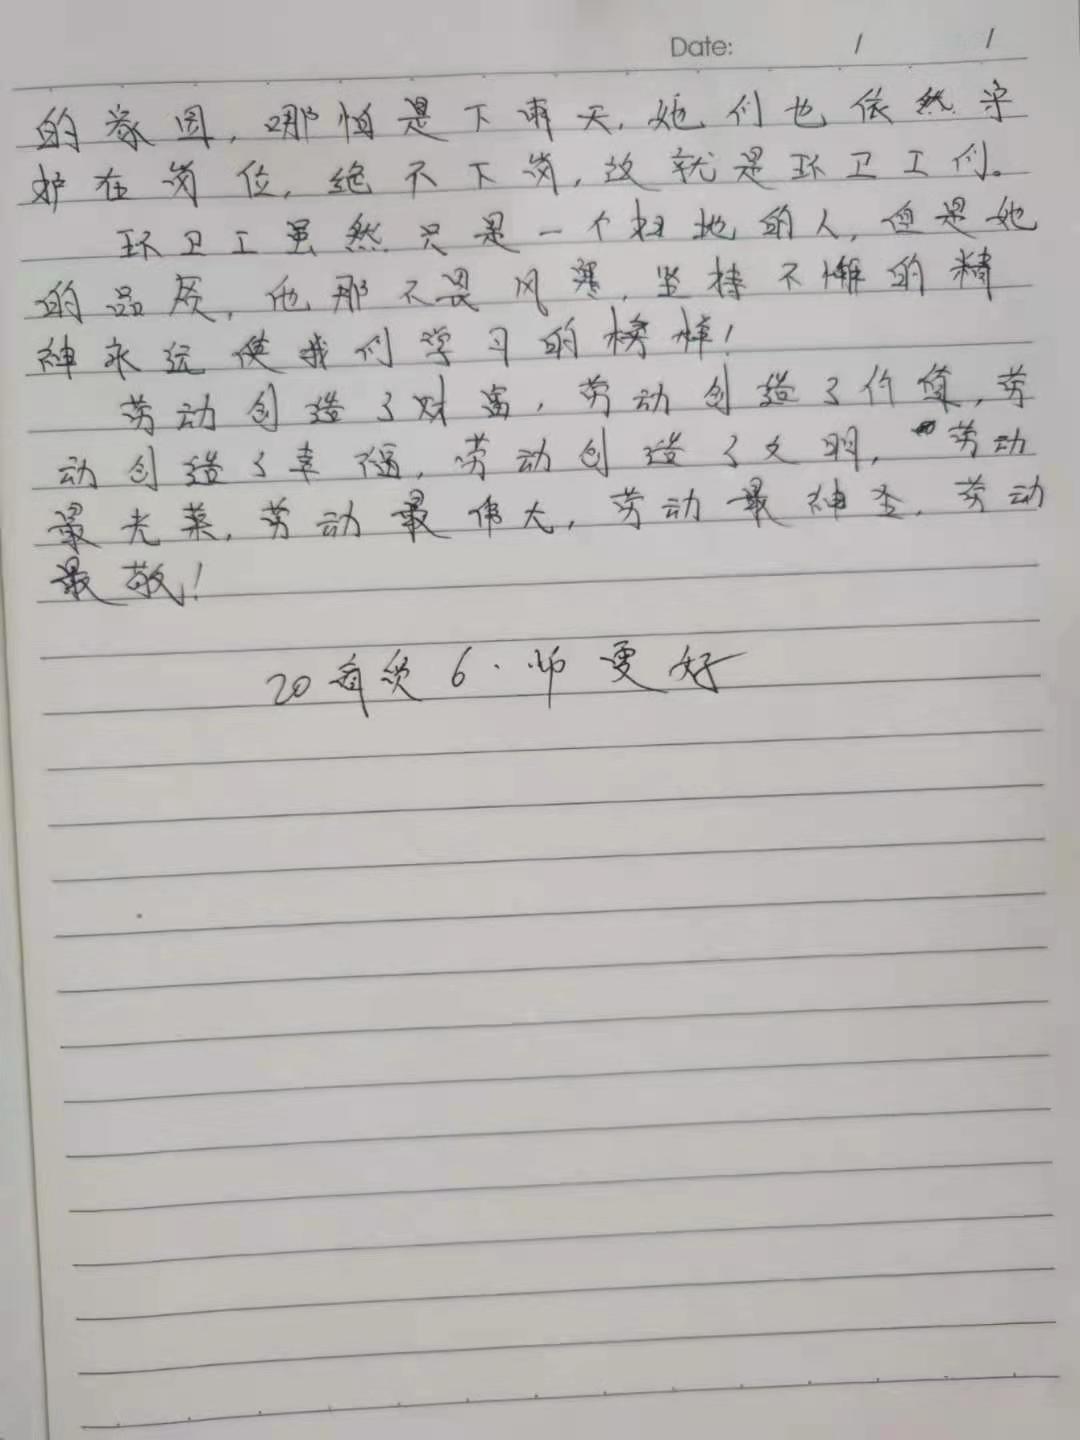 Date: / /
的家园，哪怕是下雨天，她们也依然守
护在岗位，绝不下岗，这就是环卫工们。
环卫工虽然只是一个扫地的人，但是她
的品质，他那不畏风寒，坚持不懈的精
神永远使我们学习的榜样！
劳动创造了财富，劳动创造了价值，劳
动创造了幸福，劳动创造了文明，劳动
最光荣，劳动最伟大，劳动最神圣，劳动
最敬！
20 6·师更好